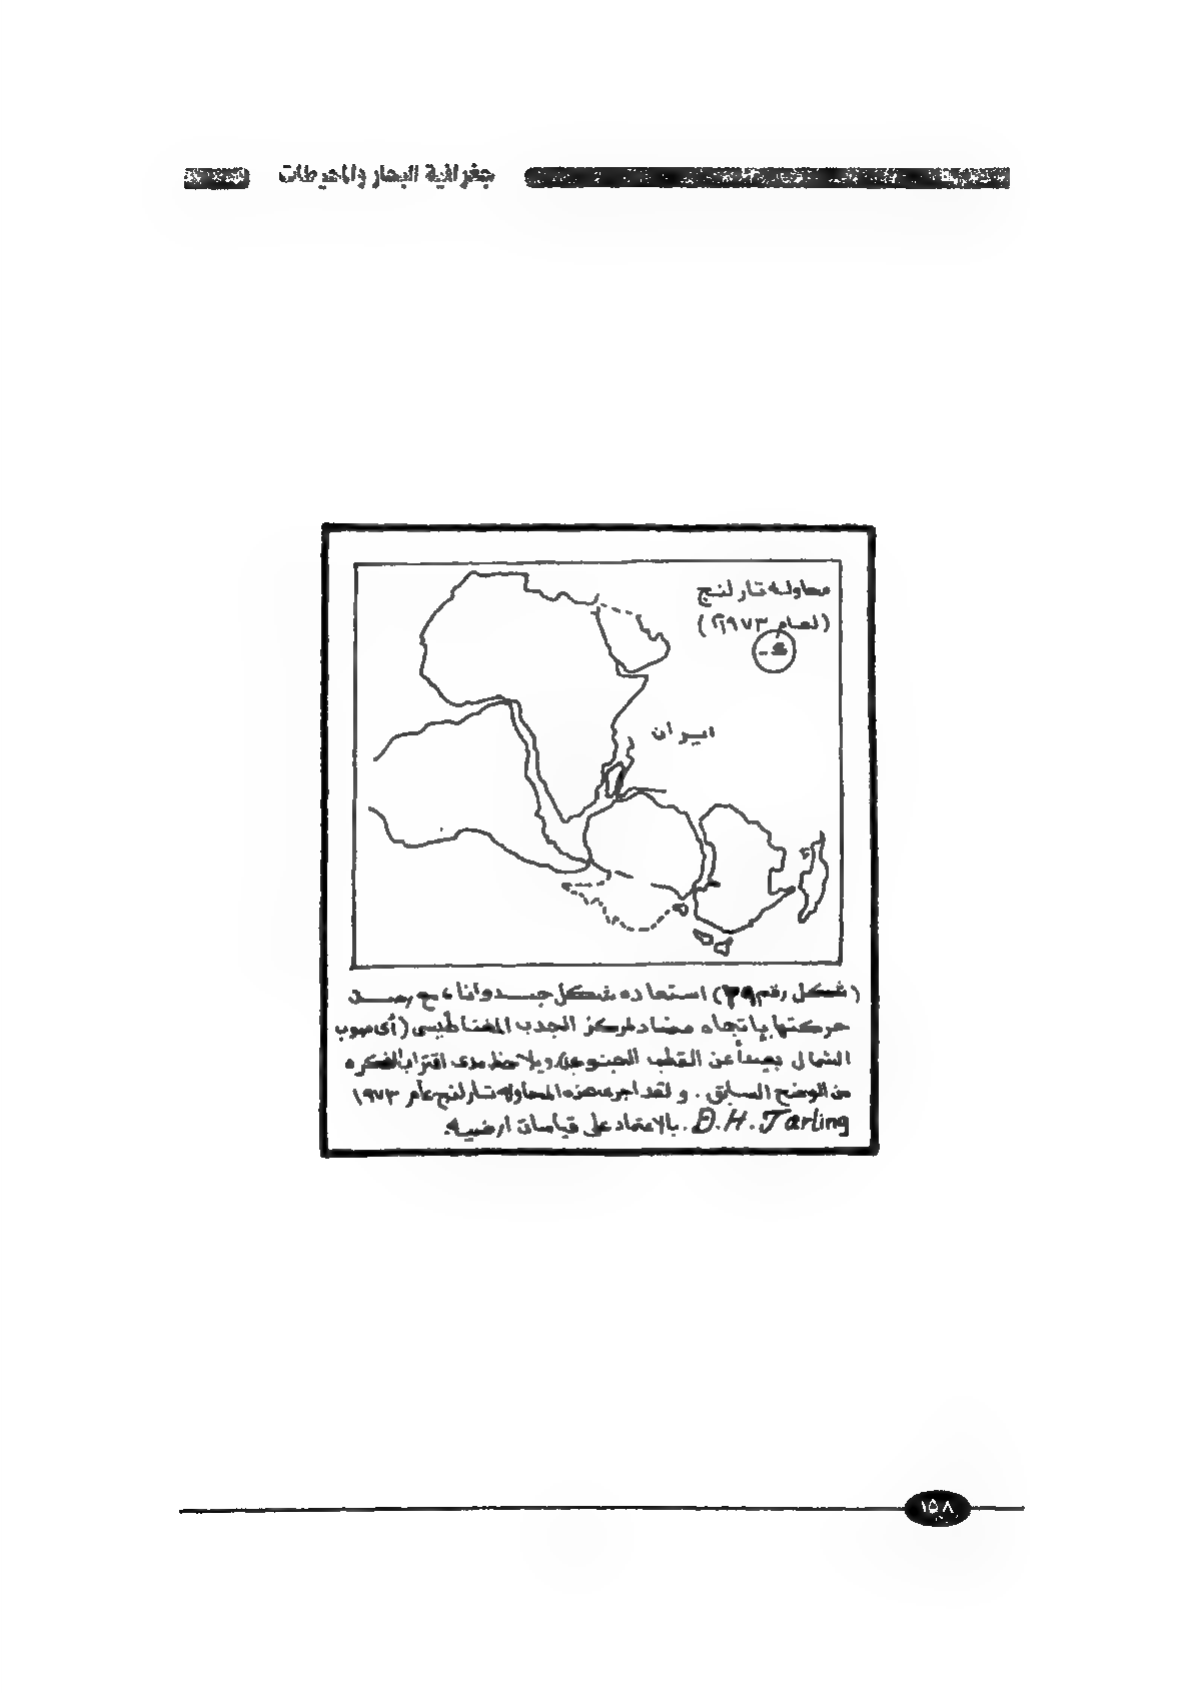 جغرافية البحار والمحيطات
محاوله تارلنج
(لعام ١٩٧٣)
ايران
(شكل رقم ٣٩) استعاده شكل جندوانا، مع رصد
حركتها بإتجاه مضاد لمركز الجذب المغناطيسى (أى صوب
الشمال بعيداً عن القطب الجنوبى) ويلاحظ مدى اقتراب الفكره
من الوضع السابق. و لقد اجرى هذه المحاوله تارلنج عام ١٩٧٣
D.H. Tarling. بالاعتماد على قياسات ارضيه.
١٥٨